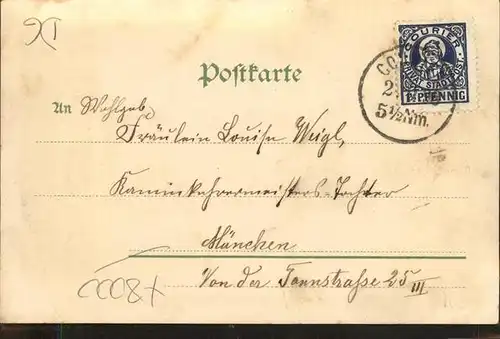 COURIER
PRIVAT STADTPOST
1½ PFENNIG
CO
2
5½Nm.
Postkarte
An Wohlgeb.
Fräulein Louise Weigl,
Kaminkehrermeisters-Tochter
München
Von der Tannstraße 25 III